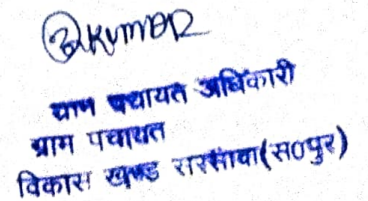 Kumar
ग्राम पंचायत अधिकारी
ग्राम पंचायत
विकास खण्ड सरसावा(स०पुर)